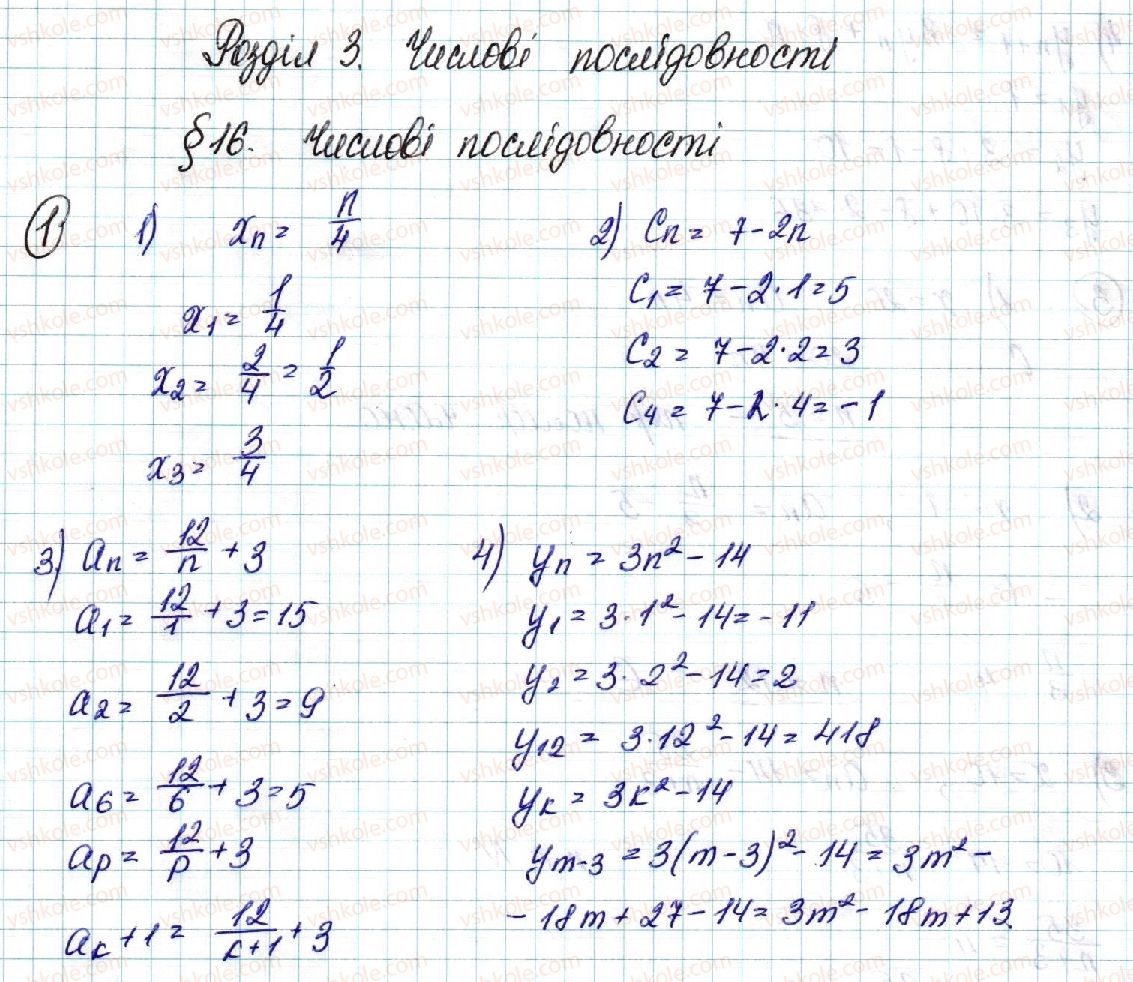 Розділ 3. Числові послідовності
§16. Числові послідовності
① 1) xₙ = n/4
x₁ = 1/4
x₂ = 2/4 = 1/2
x₃ = 3/4
2) Cₙ = 7-2n
C₁ = 7-2·1=5
C₂ = 7-2·2=3
C₄ = 7-2·4=-1
3) aₙ = 12/n + 3
a₁ = 12/1 + 3 = 15
a₂ = 12/2 + 3 = 9
a₆ = 12/6 + 3 = 5
aₚ = 12/p + 3
aₖ+1 = 12/(k+1) + 3
4) yₙ = 3n² - 14
y₁ = 3·1² - 14 = -11
y₂ = 3·2² - 14 = 2
y₁₂ = 3·12² - 14 = 418
yₖ = 3k² - 14
yₘ₋₃ = 3(m-3)² - 14 = 3m² -
- 18m + 27 - 14 = 3m² - 18m + 13
vshkole.com